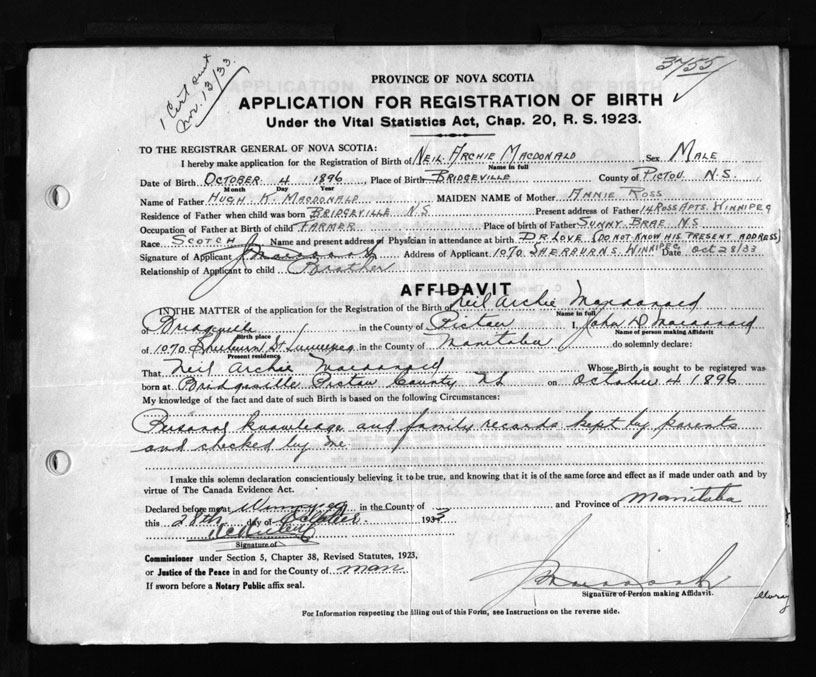 1 Cert sent
Nov. 13/33.
3755
PROVINCE OF NOVA SCOTIA
APPLICATION FOR REGISTRATION OF BIRTH
Under the Vital Statistics Act, Chap. 20, R. S. 1923.
TO THE REGISTRAR GENERAL OF NOVA SCOTIA:
I hereby make application for the Registration of Birth of NEIL ARCHIE MACDONALD Sex MALE
Name in full
Date of Birth OCTOBER 4 1896 Place of Birth BRIDGEVILLE County of PICTOU N.S.
Month Day Year
Name of Father HUGH K. MACDONALD MAIDEN NAME of Mother ANNIE ROSS
Residence of Father when child was born BRIDGEVILLE N S Present address of Father 14 ROSS APTS. WINNIPEG
Occupation of Father at Birth of child FARMER Place of birth of Father SUNNY BRAE N.S.
Race SCOTCH Name and present address of Physician in attendance at birth DR. LOVE (DO NOT KNOW HIS PRESENT ADDRESS)
Signature of Applicant Address of Applicant 1070 SHERBURN S. WINNIPEG Date Oct 28/33
Relationship of Applicant to child Brother
AFFIDAVIT
IN THE MATTER of the application for the Registration of the Birth of Neil Archie Macdonald
Name in full
of Bridgeville in the County of Pictou I, John D Macdonald
Birth place Name of person making Affidavit
of 1070 Sherburn St Winnipeg in the County of Manitoba do solemnly declare:
Present residence
That Neil Archie Macdonald Whose Birth is sought to be registered was
born at Bridgeville Pictou County N S on October 4 1896
My knowledge of the fact and date of such Birth is based on the following Circumstances:
Personal knowledge and family records kept by parents
and checked by me
I make this solemn declaration conscientiously believing it to be true, and knowing that it is of the same force and effect as if made under oath and by
virtue of The Canada Evidence Act.
Declared before me at Winnipeg in the County of and Province of Manitoba
this 28th day of October 1933
Signature of
Commissioner under Section 5, Chapter 38, Revised Statutes, 1923,
or Justice of the Peace in and for the County of Man
If sworn before a Notary Public affix seal.
Signature of Person making Affidavit.
For Information respecting the filling out of this Form, see Instructions on the reverse side.